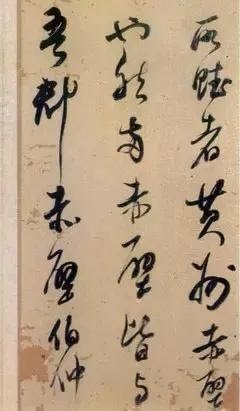 所赋者黄州赤壁
也然两赤壁皆与
吾郡赤壁伯仲